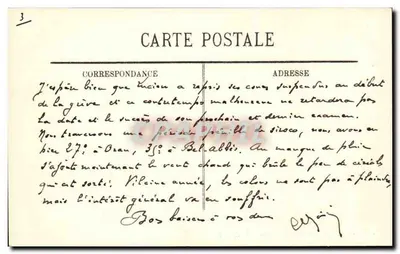 3
CARTE POSTALE
CORRESPONDANCE
ADRESSE
J'espère bien que Lucien a repris ses cours suspendus au début
de la grève et ce contretemps malheureux ne retardera pas
la date et le succès de son prochain et dernier examen.
Nous traversons une période de siroco, nous avons eu
hier 27° à Oran, 35° à Bel-Abbès. Au manque de pluie
s'ajoute maintenant le vent chaud qui brûle le peu de céréales
qui est sorti. Vilaine année, les colons ne sont pas à plaindre,
mais l'intérêt général va en souffrir.
Bons baisers à vos deux